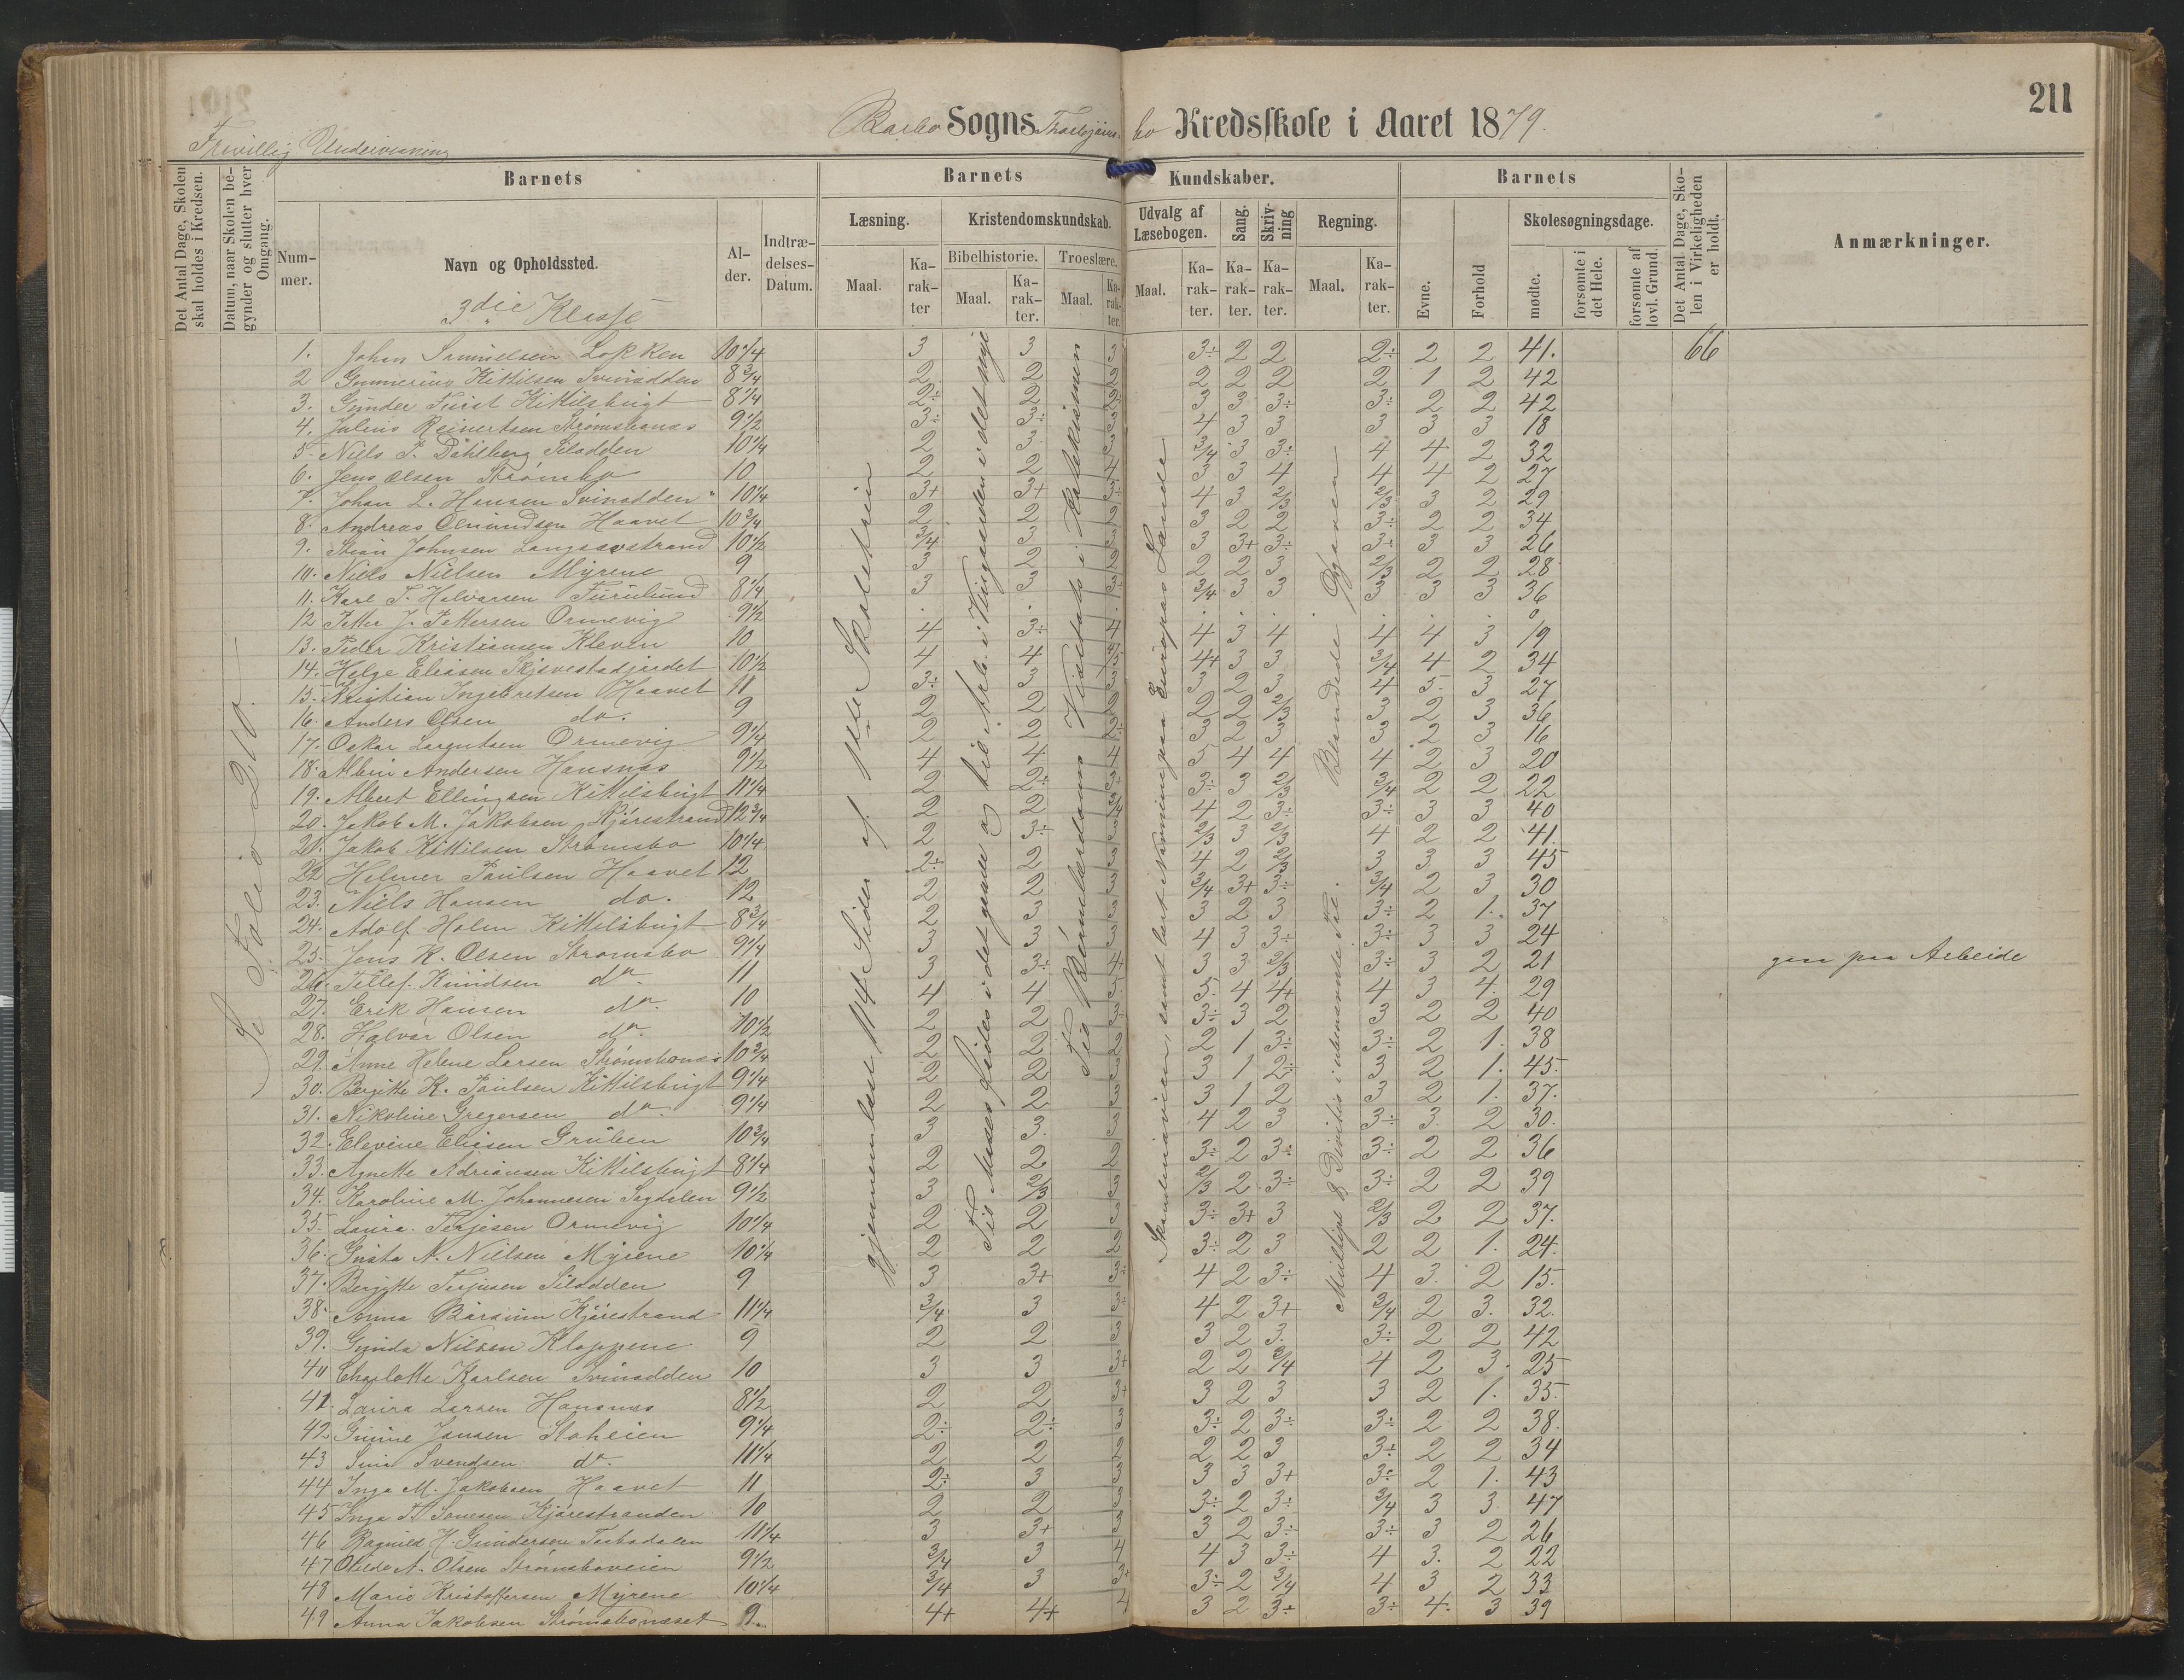 211
Barbo Sogns Kredsskole i Aaret 1879.
Frivillig Undervisning
Det Antal Dage, Skolen skal holdes i Kredsen.
Datum, naar Skolen begynder og slutter hver Omgang.
Barnets
Nummer.
Navn og Opholdssted.
3die Klasse
Alder.
Indtrædelses-Datum.
Barnets Kundskaber.
Læsning.
Maal.
Karakter
Kristendomskundskab.
Bibelhistorie.
Maal.
Karakter.
Troeslære.
Maal.
Karakter.
Udvalg af Læsebogen.
Maal.
Karakter.
Sang.
Karakter.
Skrivning
Karakter.
Regning.
Maal.
Karakter.
Barnets
Evne.
Forhold
Skolesøgningsdage.
mødte.
forsømte i det Hele.
forsømte af lovl. Grund.
Det Antal Dage, Skolen i Virkeligheden er holdt.
Anmærkninger.
Se Folio 210.
1. Johan Samuelsen Løkken 10 1/4 3 3 3 3÷ 2 2 2÷ 2 2 41. 66
2 Gunnerius Kittilsen Svinodden 8 3/4 2 2 2 2 2 2 2 1 2 42
3. Gunder Furst Kittilsbugt 8 1/4 2÷ 2 3 3 3÷ 3÷ 2 2 42
4. Julius Reinertsen Strømsbonæs 9 1/2 3÷ 3÷ 3 4 3 3 3 3 3 18
5. Niels P. Dahlberg Silodden 10 1/4 2 3 3 3/4 3 3÷ 4 4 2 32
6. Jens Olsen Strømsbo 10 2 2 4 3 3 4 4 4 2 27
7. Johan L. Hansen Svinodden 10 1/4 3+ 3+ 4 3 2/3 2/3 3 2 29
8. Andreas Osmundsen Haavet 10 3/4 2 2 2 3 2 2 3÷ 2 2 34
9. Johnsen Langsævstrand 10 1/2 3/4 3 3 3 3+ 3÷ 3÷ 3 3 26
10. Niels Nielsen Myrene 9 3 2 2 2 2 3 2/3 2 2 28
11. Karl T. Halvorsen Furulund 8 1/4 3 3 3÷ 3/4 3 3 3 3 3 36
12 Petter J. Pettersen Ormevig 9 1/2 0
13. Peder Kristiansen Kleven 10 4 3÷ 4 4 3 4 4 4 3 19
14. Helge Eliasen Skjsvestadjordet 10 1/2 4 4 4/5 4+ 3 3 3/4 4 2 34
15. Kristian Ingebretsen Haavet 11 3÷ 3 3 3 2 3 4 5. 3 27
16. Anders Olsen do. 9 2 2 2 2 2 2/3 3 2 3 36
17. Oskar Ormevig 9 1/4 2 2 2÷ 3 2 3 3 2 3 16
18. Albin Andersen Hansnæs 9 1/2 4 4 4 5 4 4 4 2 3 20
19. Albert Ellingsen Kittilsbugt 11 1/4 2 2÷ 3÷ 3÷ 3 2/3 3/4 2 2 22
20. Jakob M. Jakobsen Kjørestrand 12 3/4 2 2 3/4 4 2 3÷ 3÷ 3 3 40
21. Jakob Kittilsen Strømsbo 10 1/4 2 3÷ 3 2/3 3 2/3 4 2 2 41.
22 Helmer Paulsen Haavet 12 2÷ 2 3 4 2 2/3 3 3 3 45
23. Niels Hansen do. 12 2 2 3 3/4 3+ 3÷ 3/4 2 3 30
24. Adolf Holm Kittilsbugt 8 3/4 2 3 3 3 2 3 3÷ 2 1. 37
25. Jens K. Olsen Strømsbo 9 1/4 3 3 3 4 3 3÷ 3÷ 3 3 24
26. Tellef Knudsen do. 11 3 3÷ 4+ 3 3 2/3 3÷ 3 2 21 gaar paa Arbeide
27. Erik Hansen do. 10 4 4 5 5. 4 4+ 4 3 4. 29
28. Halvor Olsen do. 10 1/2 2 2 3÷ 3÷ 3 2 3 2 2 40
29. Anne Helene Larsen Strømsbonæs 10 3/4 2 2 2 2 1 3÷ 3÷ 2 1. 38
30. Bergitte K. Paulsen Kittilsbugt 9 1/4 2 2 3 3 1 2÷ 3 2 1. 45.
31. Nikoline Gregersen do. 9 1/4 2 2 3 3 1 2 3 2 1. 37.
32. Elevine Eliasen Gruben 10 3/4 3 3. 3 4 2 3 3÷ 3. 2 30.
33. Agnette Adriansen Kittilsbugt 8 1/4 2 2 2 3÷ 2 3÷ 3÷ 2 2 36
34. Karoline M. Johannesen Sagdalen 9 1/2 3 2/3 3 2/3 2 3÷ 3÷ 2 2 39
35. Laura Terjesen Ormevig 10 1/4 2 2 3 3÷ 3+ 3 2/3 2 2 37.
36. Gusta N. Nielsen Myrene 10 1/4 2 2 2 3÷ 2 3 2 2 1. 24.
37. Bergitte Terjesen Silodden 9 3 3+ 3÷ 4 2 3÷ 4 3. 2 15.
38. Anna Kjørestrand 11 1/4 3/4 3 3÷ 4 2 3+ 3/4 2 3. 32.
39. Gunda Nilsen Kloppene 9 2 2 3 3 2 3. 3÷ 2 2 42
40 Charlotte Karlsen Svinodden 10 3 3 3+ 2 2 3/4 4 2 3. 25
41. Laura Larsen Hansnæs 8 1/2 2 2 3+ 3 2 3 3 2 1. 35.
42 Gunne Jansen Stoheien 9 1/4 2÷ 2÷ 3 3÷ 2 3÷ 3÷ 2 2 38.
43 Svendsen do. 11 1/4 2 2 2 2 2 3 3÷ 2 2 34
44 Inga M. Jakobsen Haavet 11 2÷ 3 3 3 3 3+ 3÷ 2 1. 43
45 Inga Kjørestranden 10 2 2 3 3÷ 2 3÷ 3/4 3 3 47
46 Ragnild H. Gundersen 11 1/4 3 3+ 3 3 2 3÷ 3÷ 3 2 26
47 A. Olsen Strømsboveien 9 1/2 3/4 3 4 4 3 3÷ 4 3. 2 22
48 Marie Kristoffersen Myrene 10 1/4 3/4 3 3+ 3÷ 2 3/4 4 3 2 33
49 Anna Jakobsen Strømsbonæset 9 4+ 4+ 4 3 2 3÷ 3÷ 4. 3 39
gjennemlæst 114 Sider af
Til Moses Lides i det gamle og til i det nye
Til Børnelærdommen i Katekismen
Skandinavien, samt lært Navnene paa Europas Lande
Multipl. & Divition i ubenævnte Tal. Blandede Opgaver